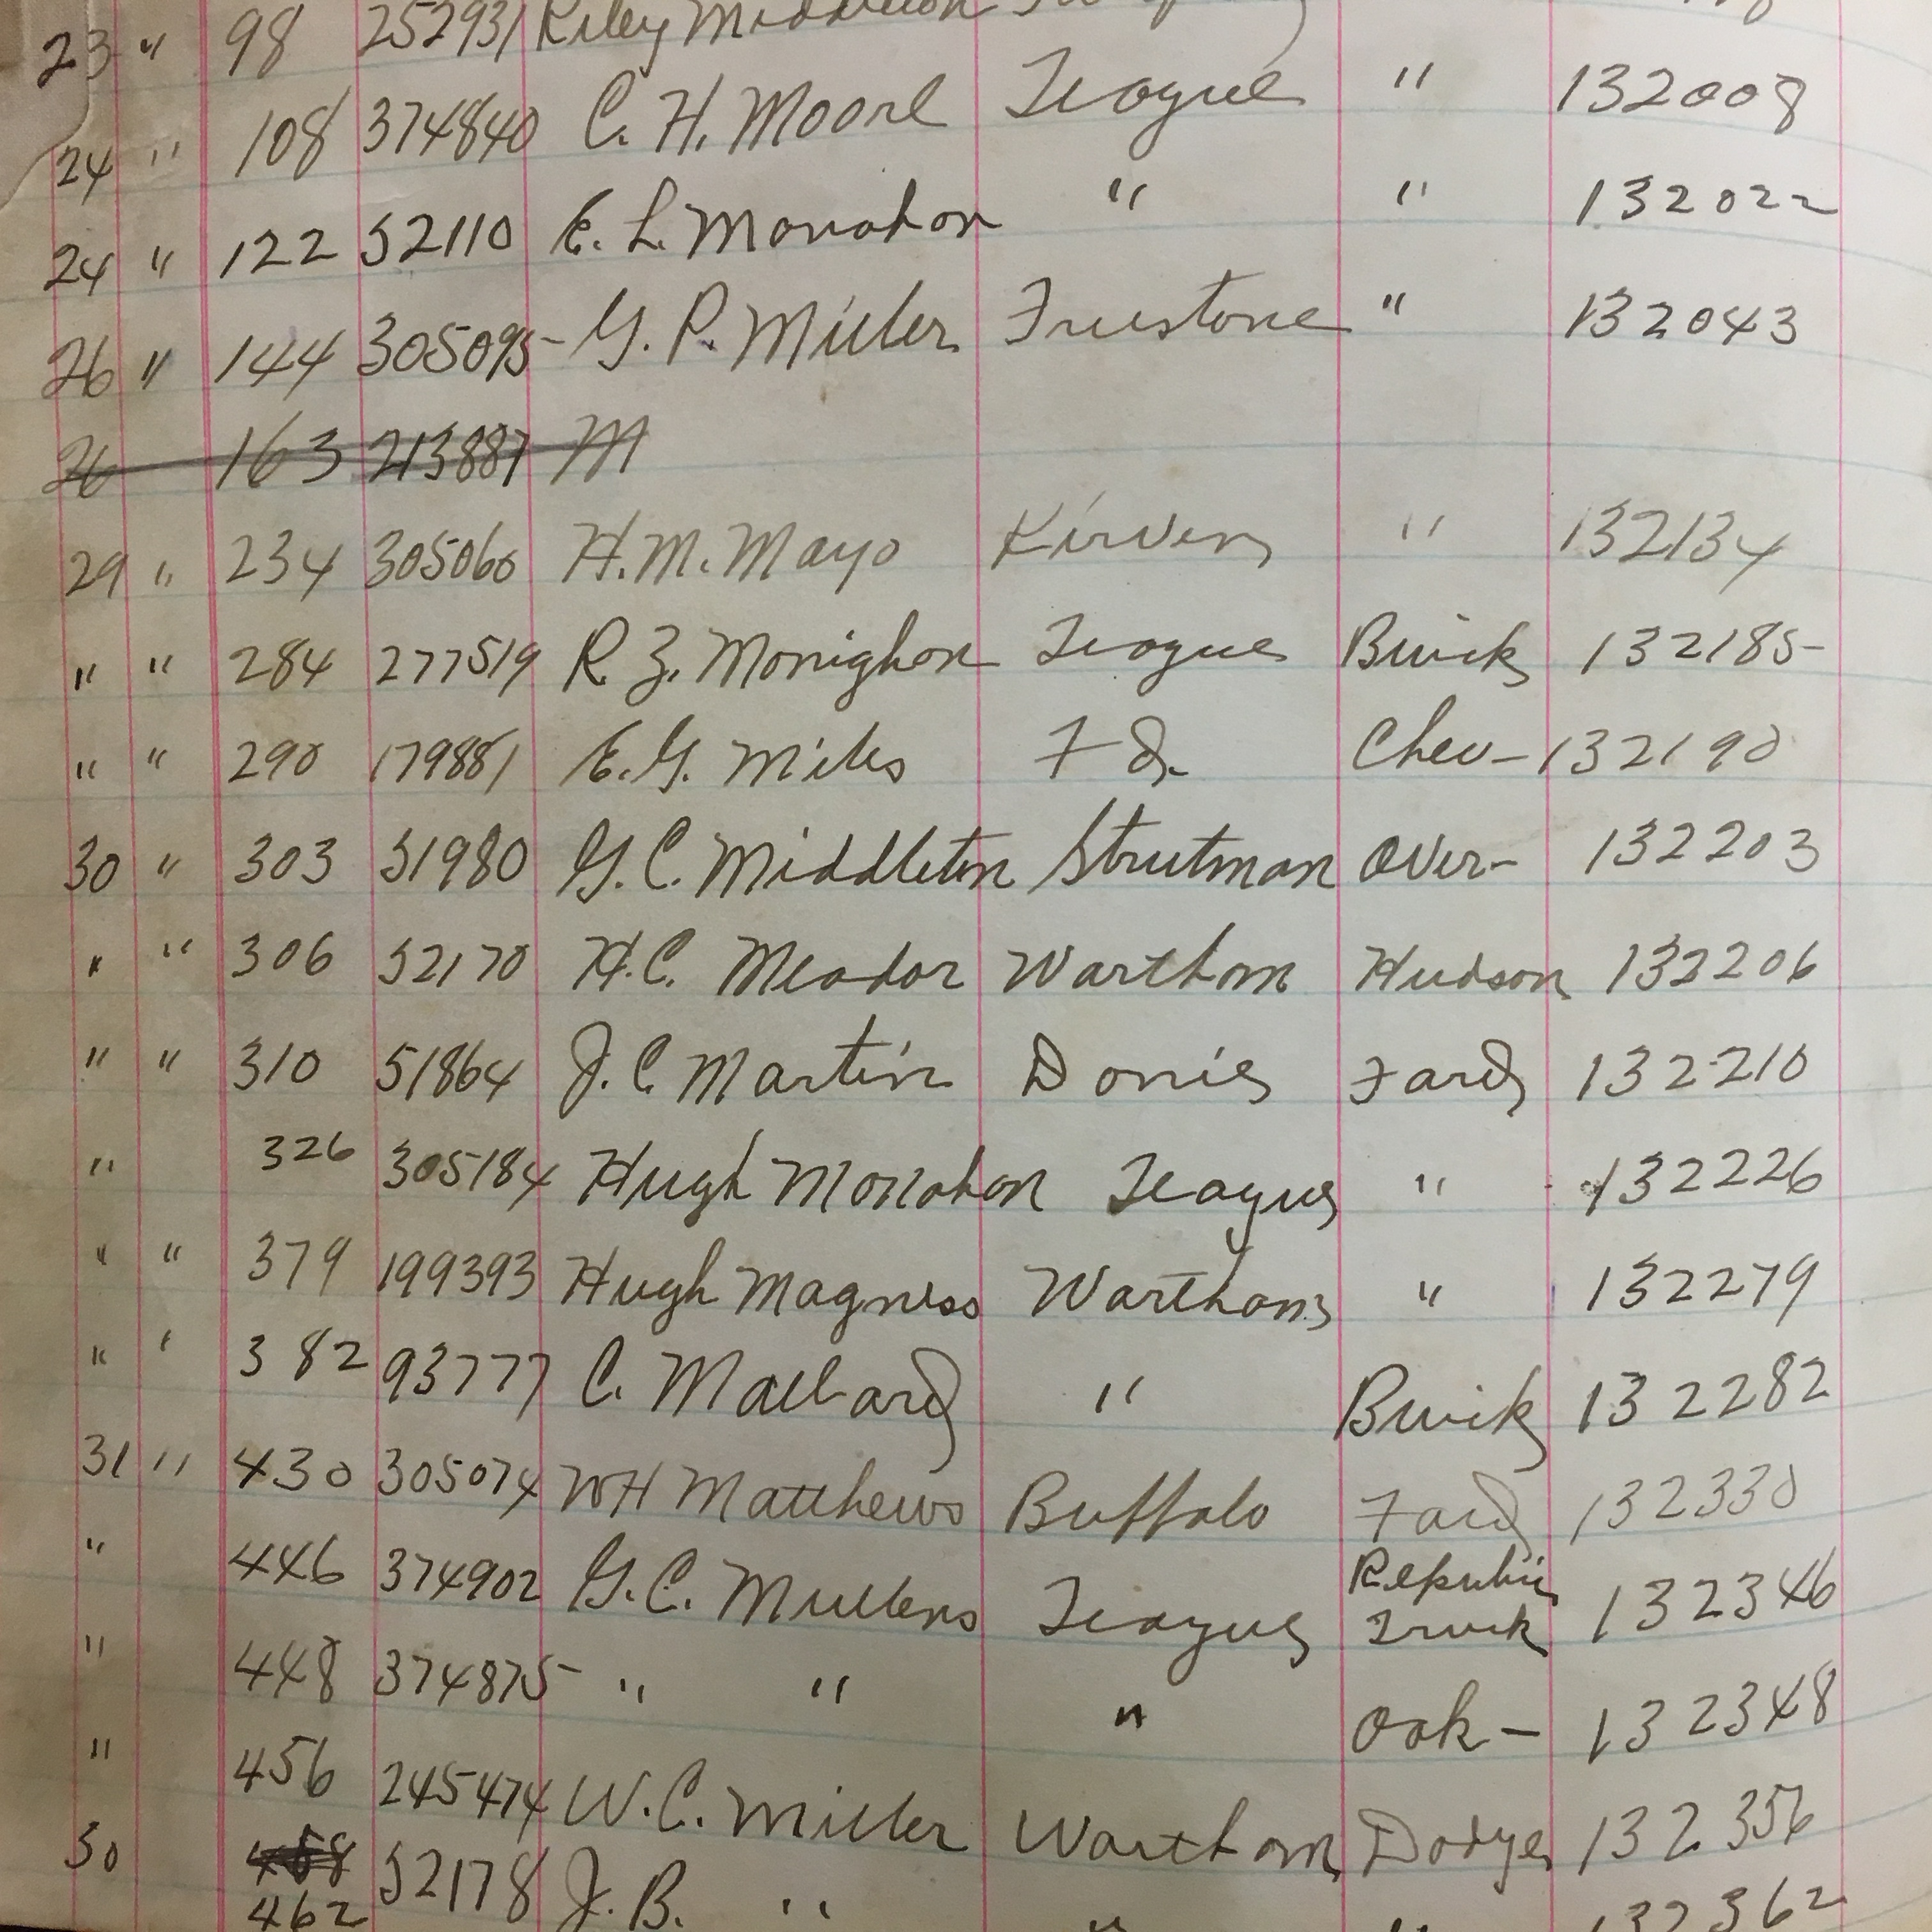 23 " 98 252931 Riley Middleton
24 " 108 374840 C. H. Moore Teague " 132008
24 " 122 52110 E. L. Monahon " " 132022
26 " 144 305095 G. P. Miller Freestone " 132043
26 163 213887 M
29 " 234 305060 H. M. Mayo Kirven " 132134
" " 284 277519 R. Z. Monighon Teague Buick 132185
" " 290 179881 E. G. Miles F d. Chev- 132190
30 " 303 51980 G. C. Middleton Strutman Over- 132203
" " 306 52170 H. C. Meador Wortham Hudson 132206
" " 310 51864 J. C. Martin Donie Ford 132210
" 326 305184 Hugh Monahon Teague " 132226
" " 379 199393 Hugh Magness Wortham " 132279
" ' 382 93777 C. Mallard " Buick 132282
31 " 430 305074 WH Matthews Buffalo Ford 132330
" 446 374902 G. C. Mullens Teague Republic Truck 132346
" 448 374875 " " " Oak- 132348
" 456 245474 W. C. Miller Wortham Dodge 132356
30 458 462 52178 J. B. " " " 132362